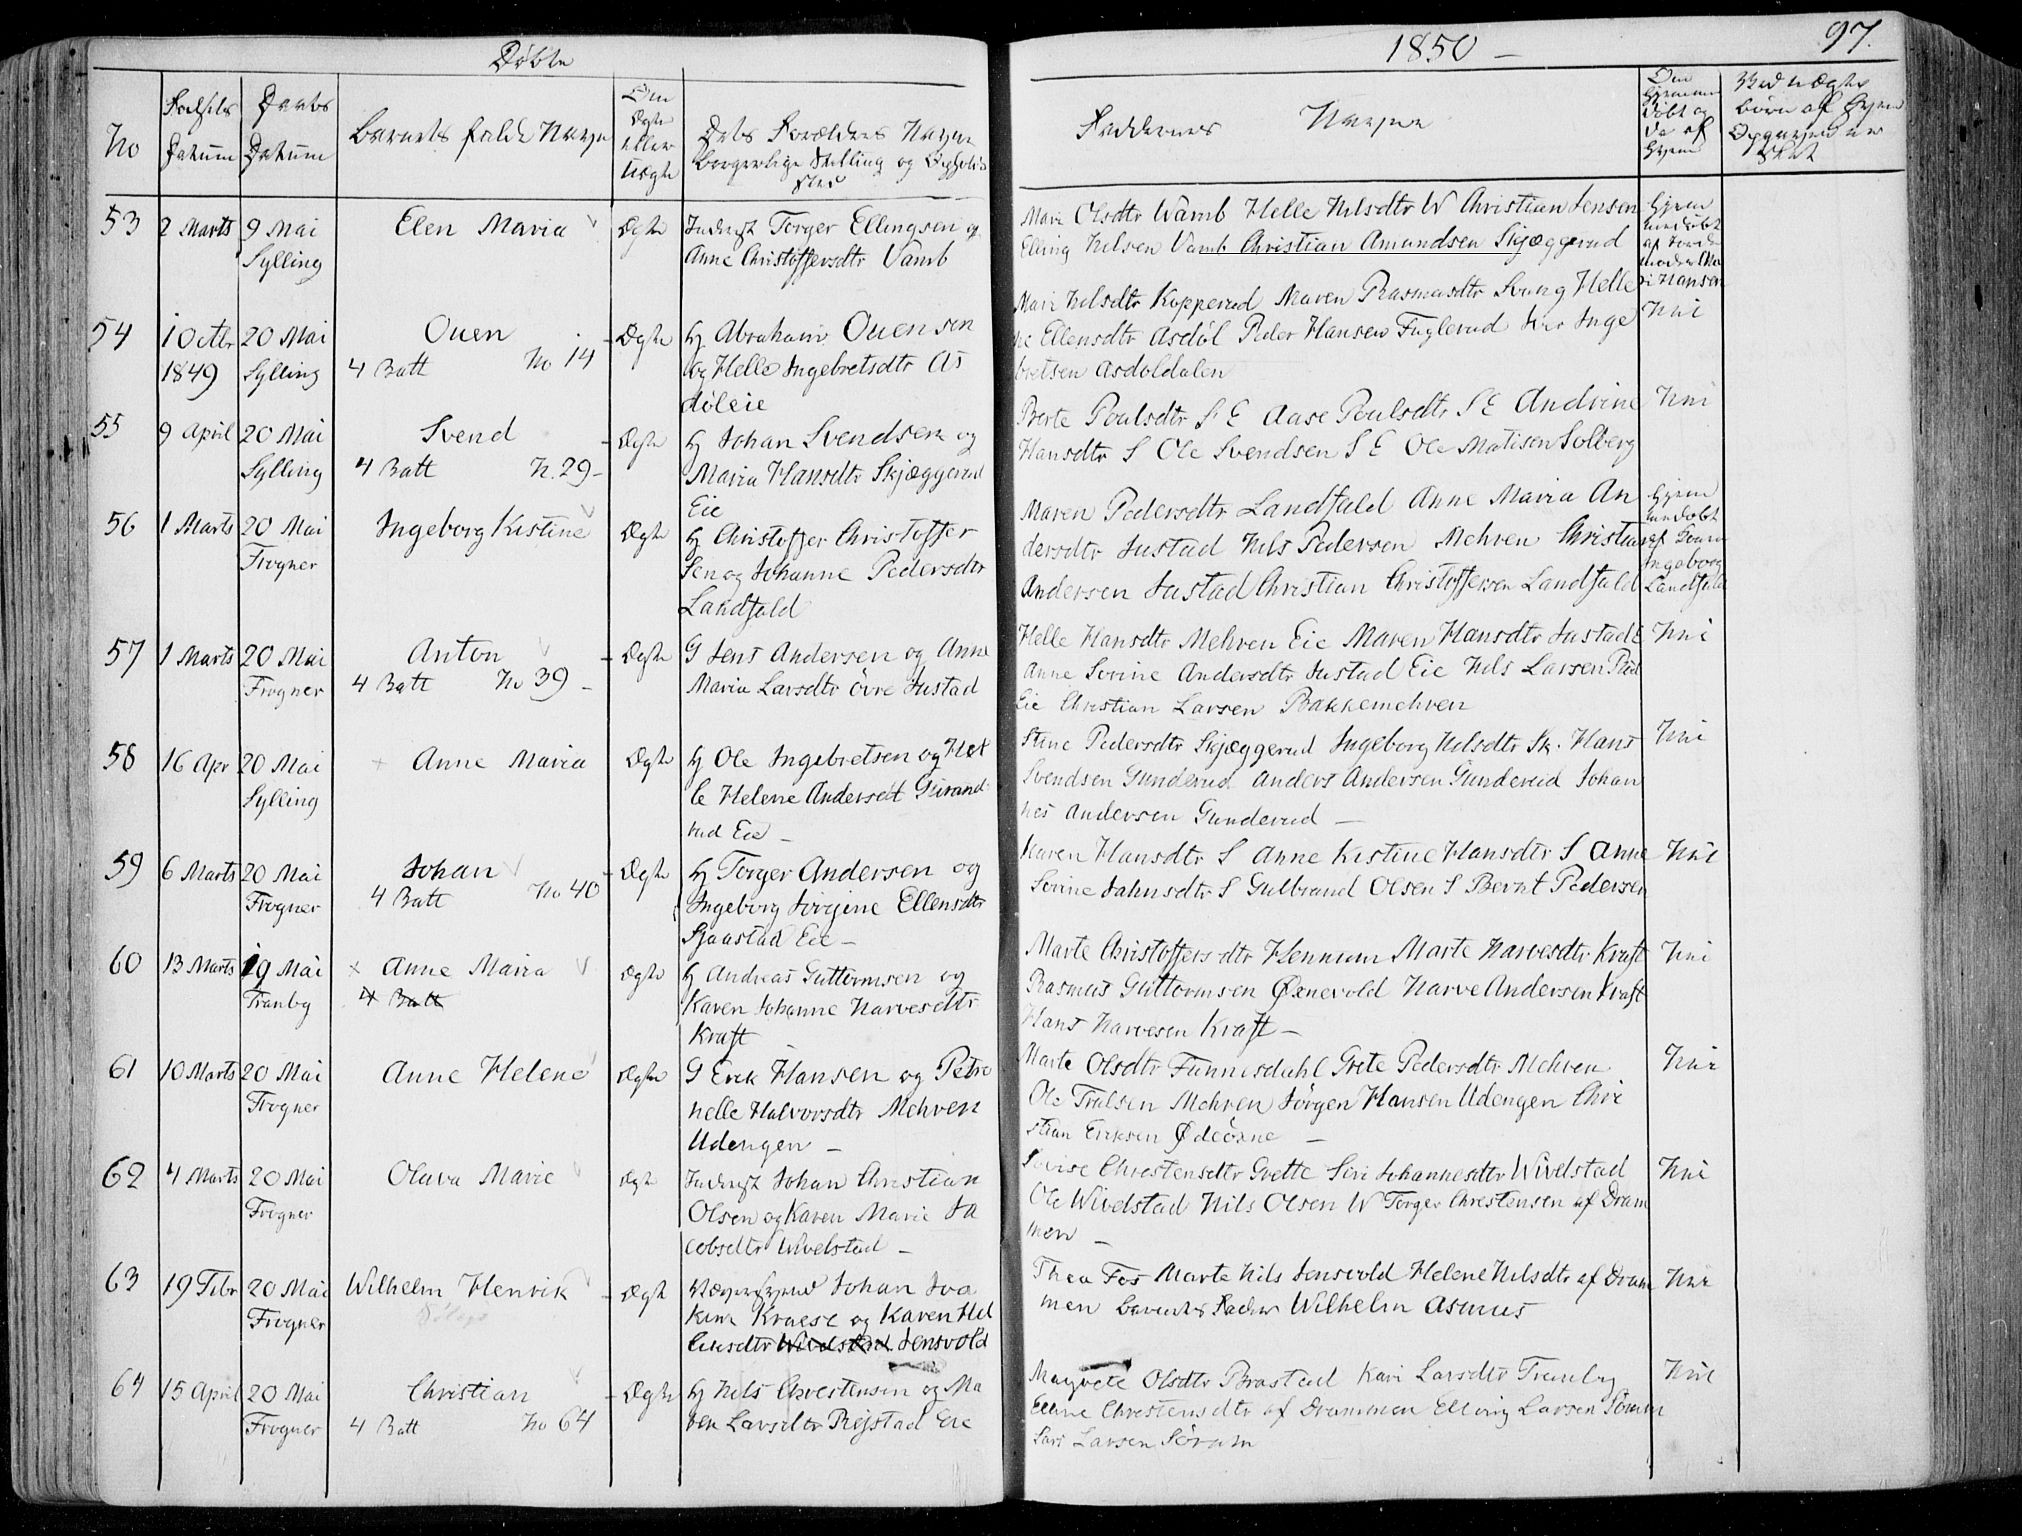 Døbte
1850
97.
No
Fødsels Datum
Daabs Datum
Barnets fulde Navn
Om Ægte eller Uægte
Dets Forældres Navne Borgerlige Stilling og Opholds Sted
Faddernes Navne
Om Hjemme Døbt og da af Hvem
53 2 Marts 9 Mai Sylling Elen Maria Ægte
Torger Ellingsen og
Anne Christoffersdtr Vamb
Mari Olsdtr Wamb Helle Nilsdtr W Christian Jensen
Elling Nilsen Vamb Christian Amundsen Skjæggerud
54 1 Octbr 1849 20 Mai Sylling Ouen
4 Batt No 14 Ægte
H Abraham Ouensen
og Helle Ingebretsdtr As
døleie
Mari Nilsdtr Kopperud Maren Rasmusdtr Svang Helle
ne Ellensdtr Asdøl Peder Hansen Fuglerud Iver Inge
bretsen Asdøldalen
Nei
55 9 April 20 Mai Sylling Svend
4 Batt N. 29 - Ægte
H Johan Svendsen og
Maria Hansdtr Skjæggerud
Eie
Berte Poulsdtr S E Aase Poulsdtr S E Andrine
Hansdtr S Ole Svendsen S E Ole Matisen Solberg
Nei
56 1 Marts 20 Mai Frogner Ingeborg Kistine Ægte
H Christoffer Christoffer
Sen og Johanne Pedersdtr
Landfald
Maren Pedersdtr Landfald Anne Maria An
dersdtr Justad Nils Pedersen Mehren Christian
Andersen Justad Christian Christoffersen Landfald
Hjem
af
Ingeborg
Landfald
57 1 Marts 20 Mai Frogner Anton
4 Batt No 39 - Ægte
G Jens Andersen og Anne
Maria Larsdtr Övre Justad
Helle Hansdtr Mehren Eie Maren Hansdtr Justad E
Anne Sorine Andersdtr Justad Eie Nils Larsen
Eie Christian Larsen Bakkemehren
Nei
58 16 Apr 20 Mai Sylling Anne Maria Ægte
H Ole Ingebretsen og Hel
le Helene Andersdt
rud Eie -
Stine Pedersdtr Skjæggerud Ingeborg Nilsdtr Sk. Hans
Svendsen Gunderud Anders Andersen Gunderud Johan
nes Andersen Gunderud -
Nei
59 6 Marts 20 Mai Frogner Johan
4 Batt No 40 Ægte
H Torger Andersen og
Ingeborg Jörgine Ellensdtr
Sjaastad Eie -
Karen Hansdtr S Anne Kistine Hansdtr S Anne
Sorine Jahnsdtr S Gulbrand Olsen S Bernt Pedersen
Nei
60 13 Marts 19 Mai Tranby Anne Maria
4 Batt Ægte
H Andreas Guttormsen og
Karen Johanne Narvesdtr
Kraft
Marte Christoffersdtr Hennum Marte Narvesdtr Kraft
Rasmus Guttormsen Øxnevold Narve Andersen Kraft
Hans Narvesen Kraft -
Nei
61 10 Marts 20 Mai Frogner Anne Helene Ægte
G Erik Hansen og Petro
nelle Halvorsdtr Mehren
Udengen -
Marte Olsdtr Funnesdahl Grete Pedersdtr Mehren
Ole Trulsen Mehren Jörgen Hansen Udengen Chri
stian Eriksen Ødeöxne -
Nei
62 4 Marts 20 Mai Frogner Olava Marie Ægte
Johan Christian
Olsen og Karen Marie Ja
cobsdtr Wivelstad -
Lovise Chrestensdtr Grette Siri Johannesdtr Wivelstad
Ole Wivelstad Nils Olsen W Torger Chrestensen af Dram
men -
Nei
63 19 Febr 20 Mai Frogner Wilhelm Henrik Ægte
Johan Joa
kim Kraese og Karen Nil
lensdtr Wivelstad Jensvold
Thea Fos Marte Nils Jensvold Helene Nilsdtr af Dram
men Barnets Fader Wilhelm Asmus
Nei
64 15 April 20 Mai Frogner Christian
4 Batt No 64 Ægte
H Nils Chrestensen og Ma
ren Larsdtr Rejstad Eie
Magrete Olsdtr Brastad Kari Larsdtr Tranby
Elline Chrestensdtr af Drammen Elling Larsen
Lars Larsen Sørum
Nei